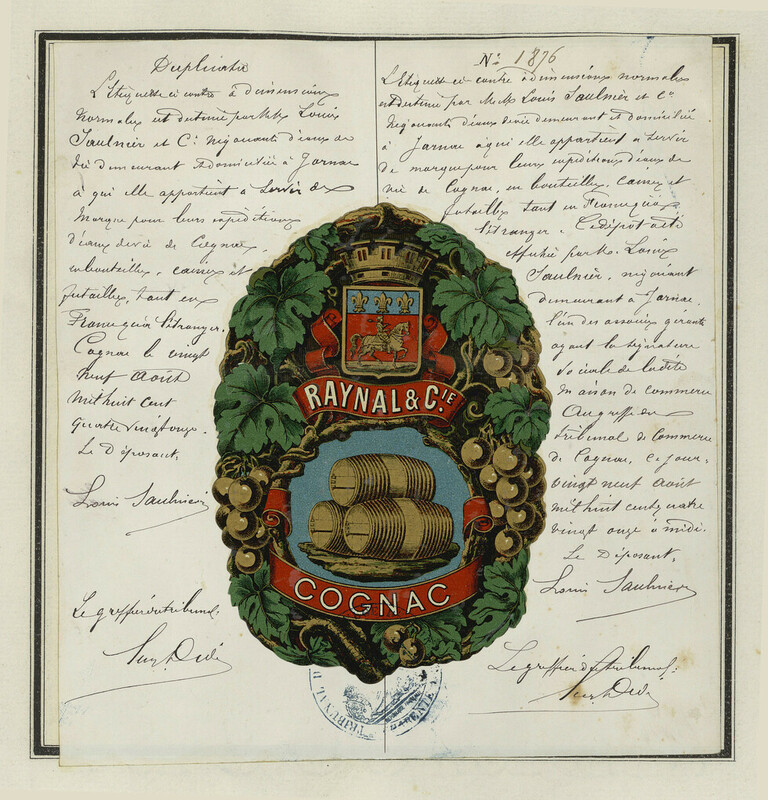 Duplicata
L'étiquette ci contre à dimensions
normales est destinée par MM. Louis
Saulnier et Cie négociants d'eaux de
vie demeurant et domiciliés à Jarnac
à qui elle appartient à servir de
marque pour leurs expéditions
d'eaux de vie de Cognac,
en bouteilles, caisses et
futailles, tant en
France qu'à l'étranger.
Cognac le vingt
neuf Août
mil huit cent
quatre vingt onze.
Le Déposant,
Louis Saulnier
Le greffier du tribunal.
No 1876
L'étiquette ci contre à dimensions normales
est destinée par MM. Louis Saulnier et Cie
négociants d'eaux de vie demeurant et domiciliés
à Jarnac à qui elle appartient à servir
de marque pour leurs expéditions d'eaux de
vie de Cognac, en bouteilles, caisses et
futailles tant en France qu'à
l'étranger. Ce dépôt a été
effectué par M. Louis
Saulnier, négociant
demeurant à Jarnac,
l'un des associés gérants
ayant la signature
sociale de la dite
maison de commerce
Au greffe du
tribunal de Commerce
de Cognac, ce jour,
vingt neuf Août
mil huit cent quatre
vingt onze à midi.
Le Déposant,
Louis Saulnier
Le greffier du tribunal.
RAYNAL & CIE.
COGNAC
TRIBUNAL D
CHARENTE